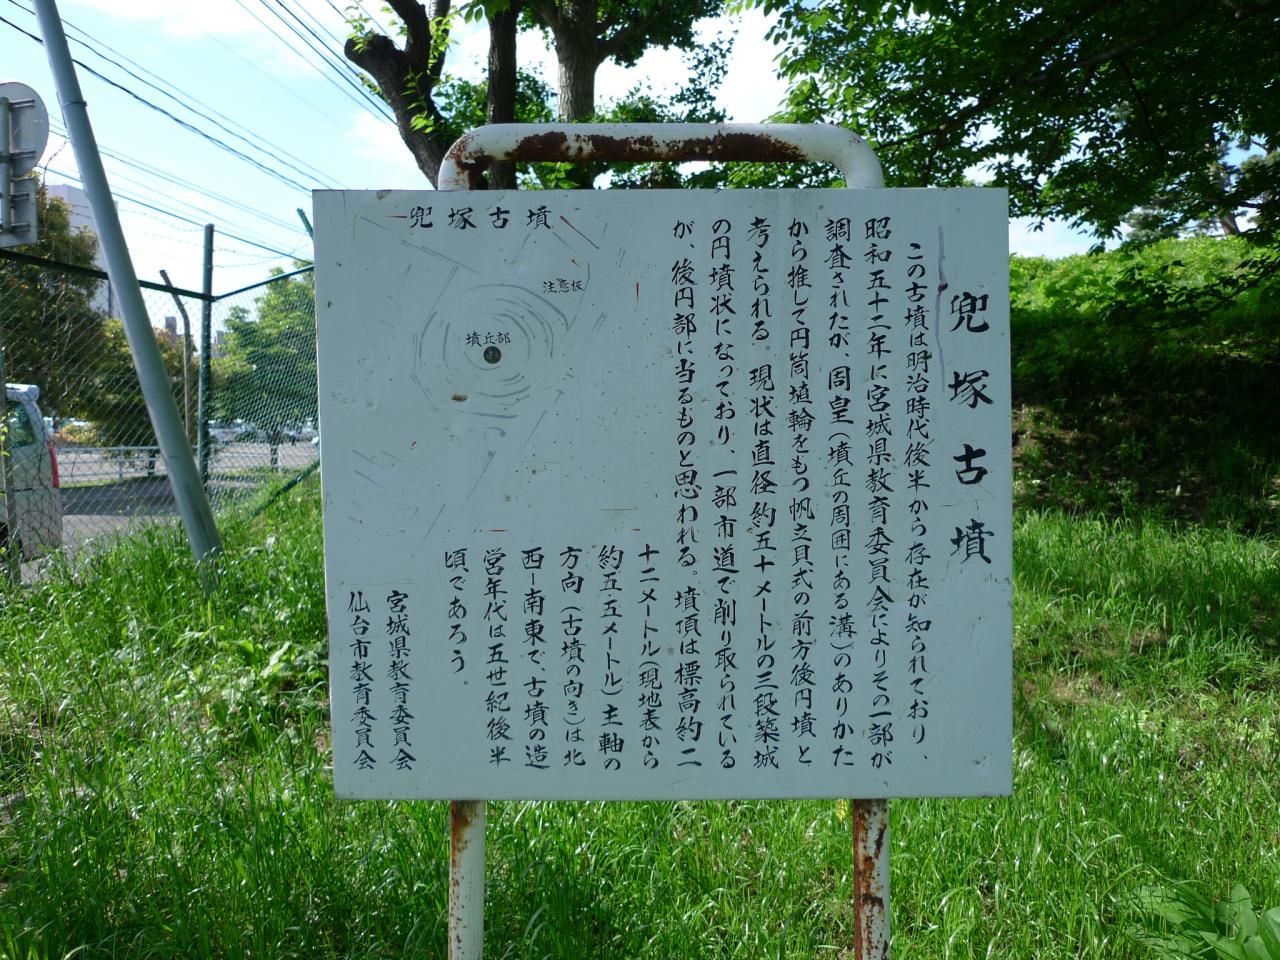 兜塚古墳
この古墳は明治時代後半から存在が知られており、
昭和五十二年に宮城県教育委員会によりその一部が
調査されたが、周皇(墳丘の周囲にある溝)のありかた
から推して円筒埴輪をもつ帆立貝式の前方後円墳と
考えられる。現状は直径約五十メートルの三段築城
の円墳状になっており、一部市道で削り取られている
が、後円部に当るものと思われる。墳頂は標高約二
十二メートル(現地表から
約五・五メートル)主軸の
方向(古墳の向き)は北
西―南東で、古墳の造
営年代は五世紀後半
頃であろう。
宮城県教育委員会
仙台市教育委員会
兜塚古墳
注意板
墳丘部